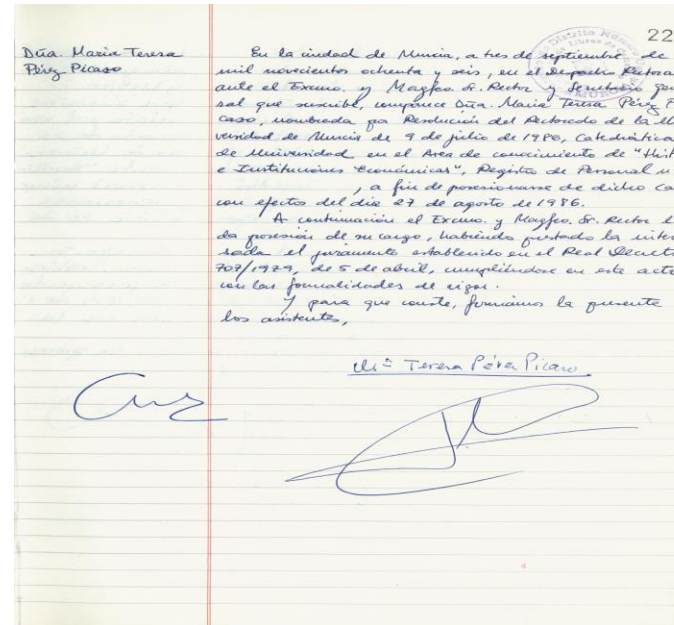 22
Dña. Maria Teresa
Pérez Picazo
En la ciudad de Murcia, a tres de septiembre de
mil novecientos ochenta y seis, en el Despacho Rectora
ante el Excmo. y Magfco. Sr. Rector y Secretario gen
ral que suscribe, comparece Dña. Maria Teresa Pérez P
cazo, nombrada por Resolución del Rectorado de la U
versidad de Murcia de 9 de julio de 1986, Catedrática
de Universidad en el Area de conocimiento de "Hist
e Instituciones Económicas", Registro de Personal n
, a fin de posesionarse de dicho Ca
con efectos del dia 27 de agosto de 1986.
A continuación el Excmo. y Magfco. Sr. Rector l
da posesión de su cargo, habiendo prestado la inter
sada el juramento establecido en el Real Decreto
707/1979, de 5 de abril, cumpliéndose en este acto
con las formalidades de rigor.
Y para que conste, firmamos la presente
los asistentes,
Mª Teresa Pérez Picazo